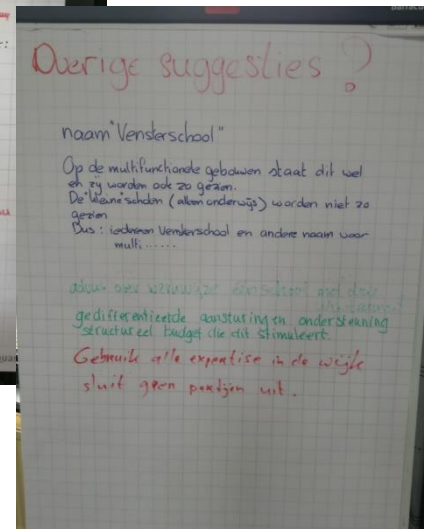 Overige suggesties ?
naam "Vensterschool"
Op de multifunctionele gebouwen staat dit wel
en zij worden ook zo gezien.
De kleine scholen (alleen onderwijs) worden niet zo
gezien
Dus : iedereen Vensterschool en andere naam voor
multi ......
gedifferentieerde aansturing en ondersteuning
structureel budget die dit stimuleert
Gebruik alle expertise in de wijk
sluit geen partijen uit.